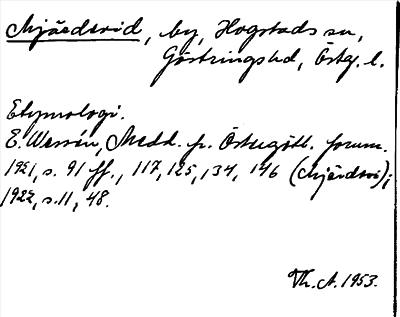 Mjärdevid, by, Hogstads sn,
Göstrings hd, Östg. l.
Etymologi.
E. Wessén, Medd. fr. Östergötl. fornm.
1921, s. 91 ff., 117, 125, 134, 146 (Mjärdevi);
1922, s. 11, 48.
Th. A. 1953.